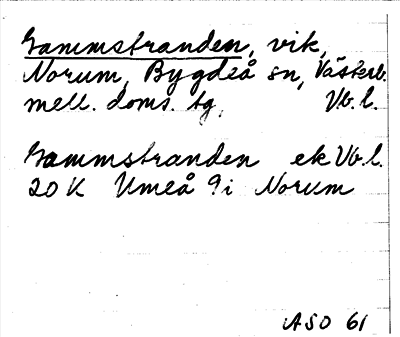 Gammstranden, vik,
Norum, Bygdeå sn, Västerb.
mell. doms. tg. Vb. l.
Gammstranden ek Vb. l.
20 K Umeå 9i Norum
ASO 61